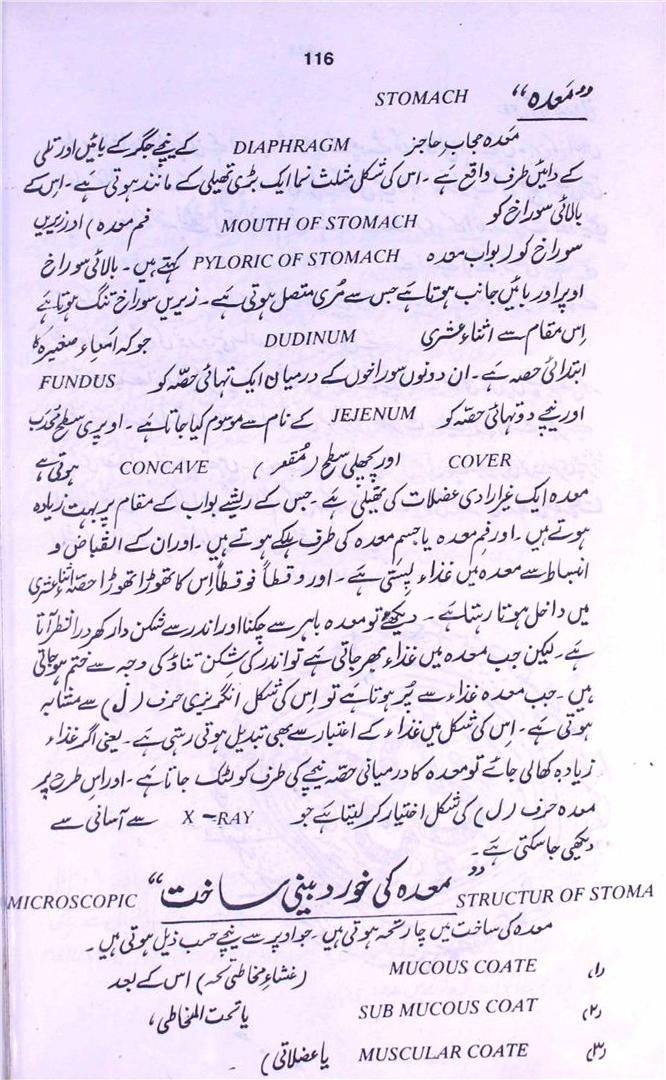 116
”معدہ“ STOMACH
معدہ حجاب حاجز DIAPHRAGM کے نیچے جگر کے بائیں اور تلی
کے دائیں طرف واقع ہے۔ اس کی شکل مثلث نما ایک بڑی تھیلی کے مانند ہوتی ہے۔ اس کے
بالائی سوراخ کو MOUTH OF STOMACH فم معدہ) اور زیریں
سوراخ کو (بواب معدہ PYLORIC OF STOMACH کہتے ہیں۔ بالائی سوراخ
اوپر اور بائیں جانب ہوتا ہے جس سے مُری متصل ہوتی ہے۔ زیریں سوراخ تنگ ہوتا ہے
اِس مقام سے اثناء عشری DUDINUM جو کہ امعاء صغیرہ کا
ابتدائی حصہ ہے۔ ان دونوں سوراخوں کے درمیان ایک تہائی حصّہ کو FUNDUS
اور نیچے دو تہائی حصّہ کو JEJENUM کے نام سے موسوم کیا جاتا ہے۔ اوپری سطح مُحدب
COVER اور پچھلی سطح (مُقعر) CONCAVE ہوتی ہے
معدہ ایک غیر ارادی عضلات کی تھیلی ہے۔ جس کے ریشے بواب کے مقام پر بہت زیادہ
ہوتے ہیں۔ اور فم معدہ یا جسم معدہ کی طرف ہلکے ہوتے ہیں۔ اور ان کے انقباض و
انبساط سے معدہ میں غذاء پستی ہے۔ اور وقطاً فوقطاً اِس کا تھوڑا تھوڑا حصّہ اثناءعشری
میں داخل ہوتا رہتا ہے۔ دیکھئے تو معدہ باہر سے چکنا اور اندر سے شکن دار کھردرا نظر آتا
ہے۔ لیکن جب معدہ میں غذاء بھر جاتی ہے تو اندر کی شِکن تناؤ کی وجہ سے ختم ہو جاتی
ہیں۔ جب معدہ غذاء سے پُر ہوتا ہے تو اِس کی شکل انگریزی حرف (ل) سے مشابہ
ہوتی ہے۔ اِس کی شکل میں غذاء کے اعتبار سے بھی تبدیل ہوتی رہتی ہے۔ یعنی اگر غذاء
زیادہ کھالی جائے تو معدہ کا درمیانی حصّہ نیچے کی طرف کو لٹک جاتا ہے۔ اور اس طرح پر
معدہ حرف (ل) کی شکل اختیار کر لیتا ہے جو X-RAY سے آسانی سے
دیکھی جا سکتی ہے۔
MICROSCOPIC ”معدہ کی خورد بینی ساخت“ STRUCTUR OF STOMA
معدہ کی ساخت میں چار تحہ ہوتی ہیں۔ جو اوپر سے نیچے حسب ذیل ہوتی ہیں۔
(۱) MUCOUS COATE (غشاءِ مخاطی تحہ) اس کے بعد
(۲) SUB MUCOUS COAT یا تحت المخاطی،
(۳) MUSCULAR COATE یا عضلاتی)۔